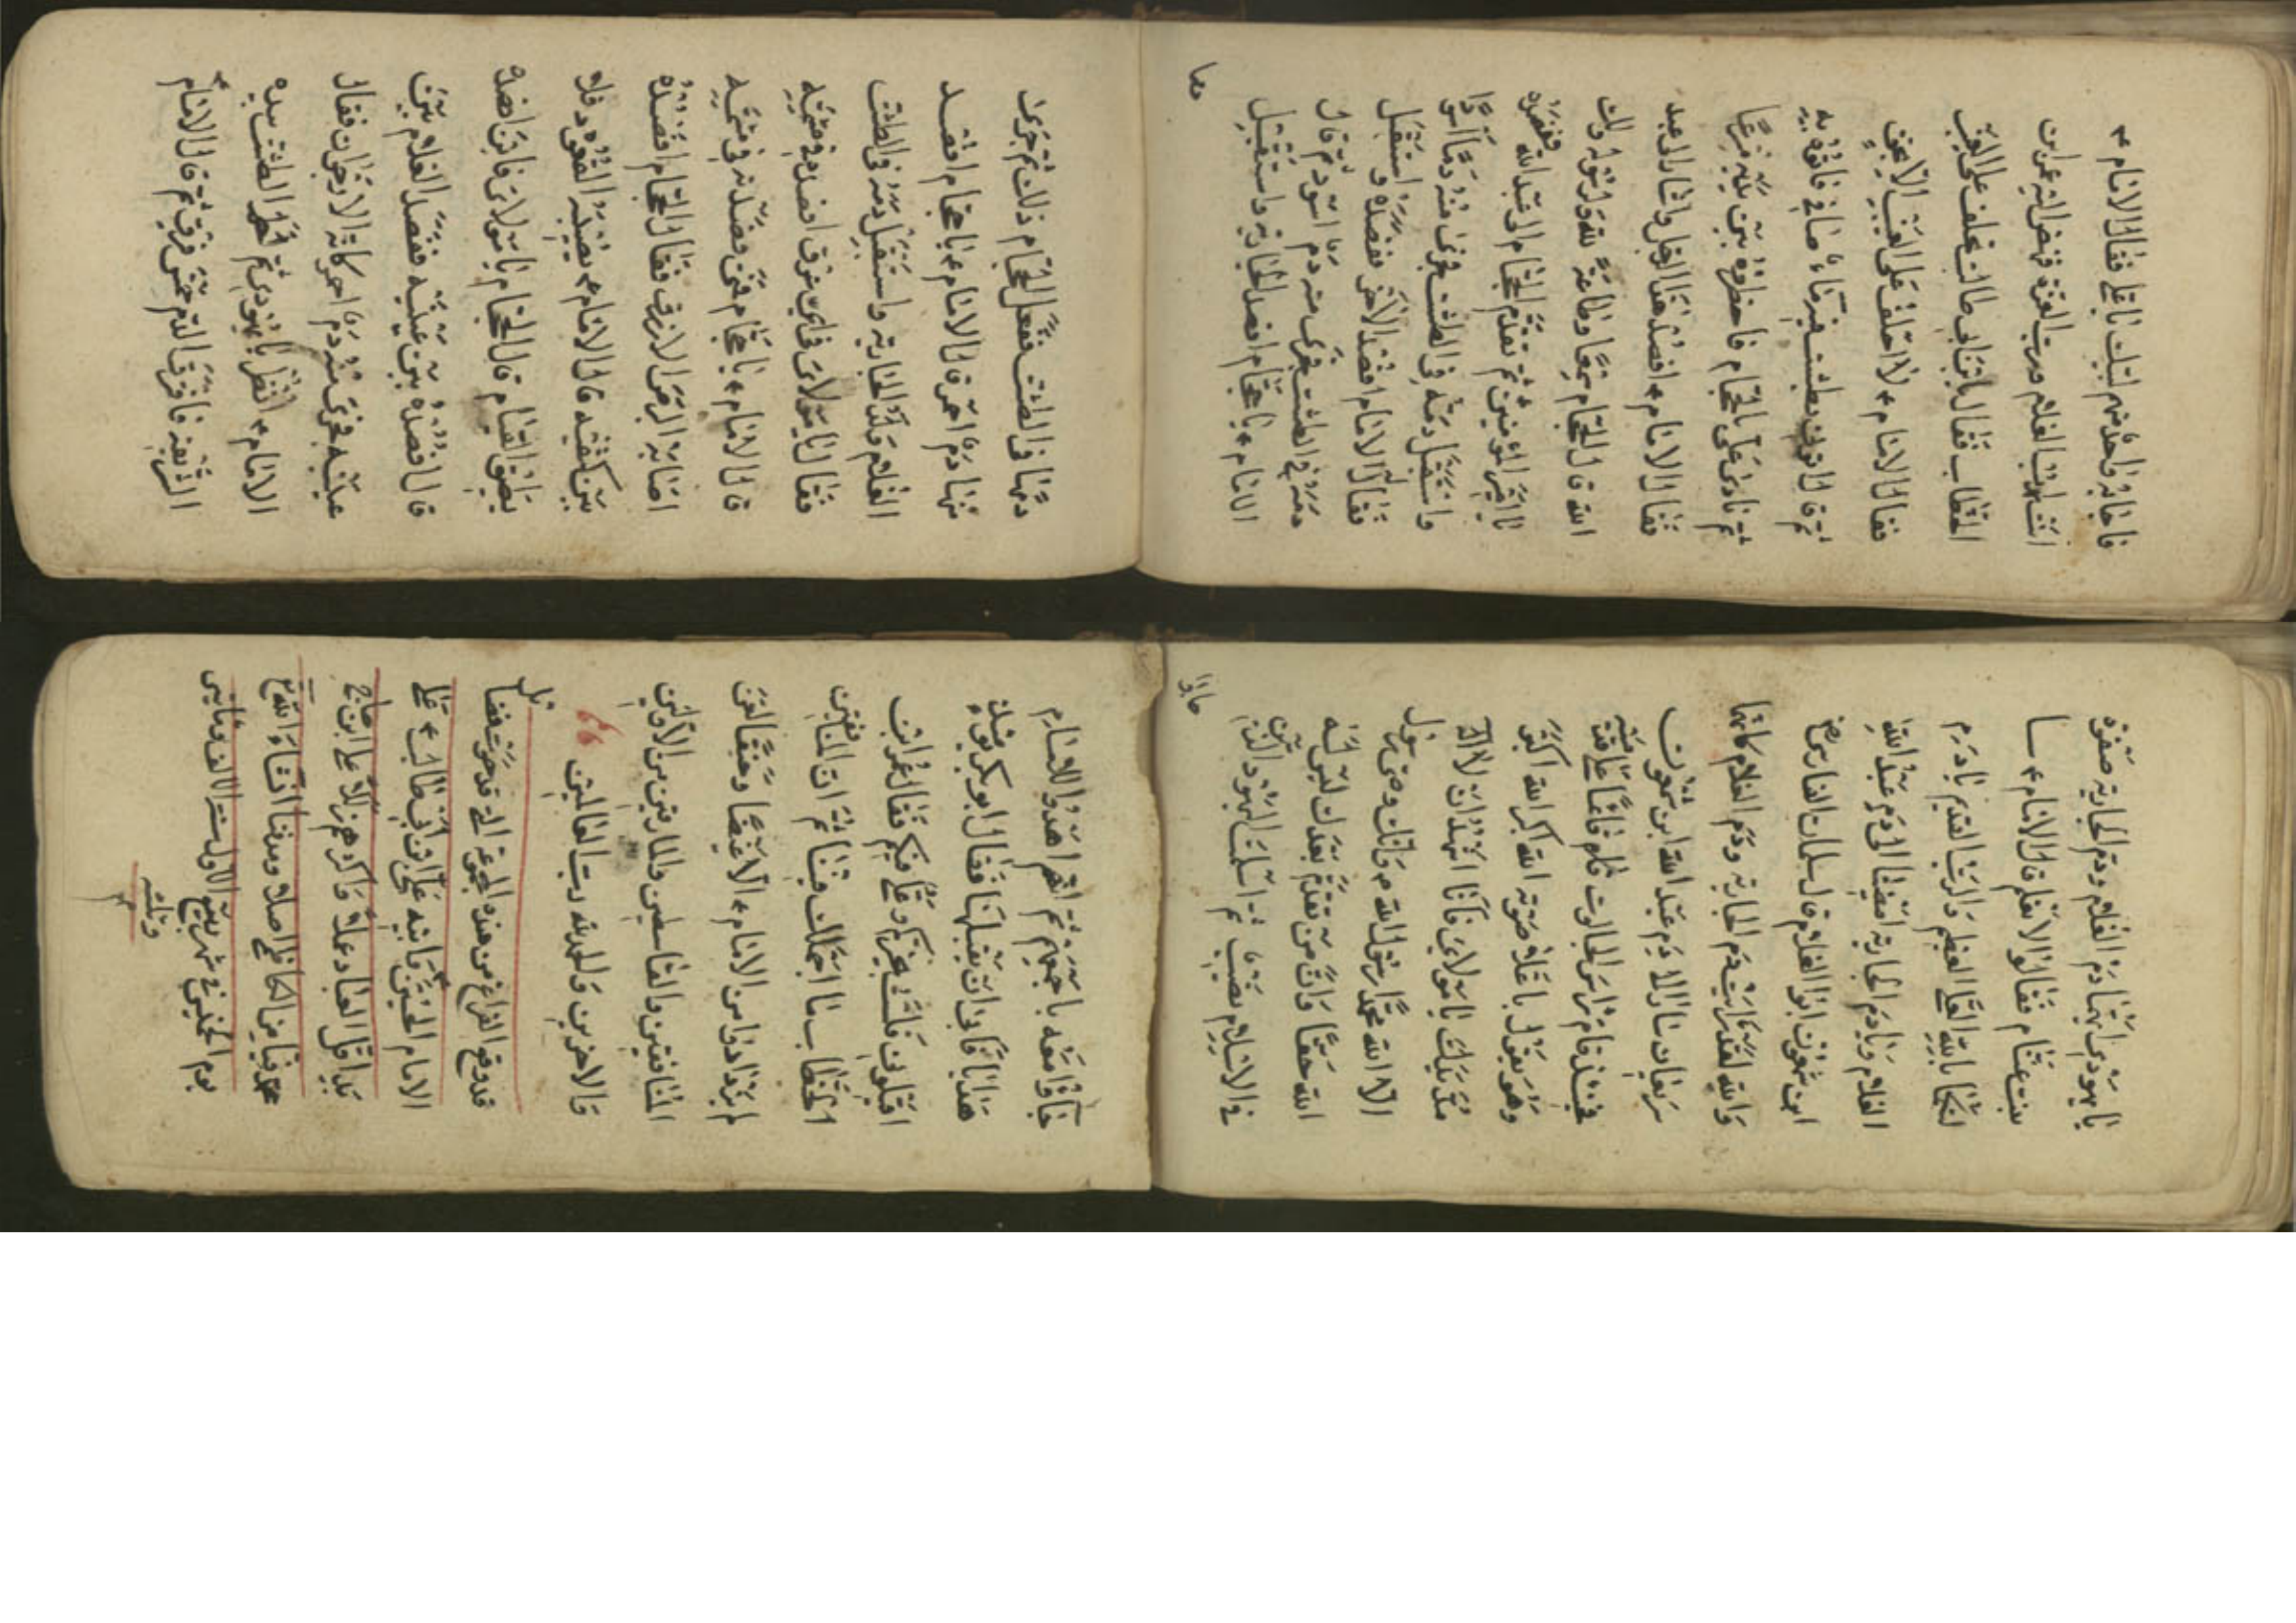 فاجابه واحد منهم لبيك يا علي فقال الامام ع
انت ابن الغلام ورب العزة فنهض اليه عمر ابن
الخطاب فقال يا بن ابي طالب تحلف على الغيب
فقال الامام ع لا احلف على الغيب الا بحق
ثم قال ائتوني بطشت فيه ماء صافي فاتوه به
ثم نادى على بالحجام فاحضروه بين يديه سرعا
فقال الامام ع افصد هذا الرجل واشار الى عبد
الله قال الحجام سمعا وطاعة لله ولرسوله ولك
يا امير المؤمنين ثم تقدم الحجام الى عبد الله ففصده
واستقبل دمه في الطشت فجرى منه دما اسودا
فقال الامام افصد الاخر ففصده واستقبل
دمه في الطشت فجرى منه دم اسود ثم قال
الامام ع يا حجام افصد الجارية واستقبل
دمها
دمها في الطشت ففعل الحجام ذلك ثم جرى
منها دم احمر قال الامام ع يا حجام افصد
الغلام ولد الجارية واستقبل دمه في الطشت
فقال يا مولاي في اي عرق افصده في قمته
قال الامام ع يا حجام فمن فصدته في قمته
اصابه الازرق فقال الحجام افصده
بين كتفيه قال الامام ع يصيبه
القيام قال الحجام يا مولاي فاين افصده
قال افصده بين عينيه ففصد الغلام بين
عينيه فجرى منه دم احمر كانه الارجوان فقال
الامام ع انظر يا يهودي ثم خط الطشت بيده
الشريفة فافرق الدم خمس فرق ثم قال الامام ع
يا يهودي ايهما دم الغلام ودم الجارية صفوة
بنت عثام فقالوا لا نعلم قال الامام ع سا
لتكما بالله العلي العظيم والرب القديم يا دم
الغلام ويا دم الجارية امضيا الى دم عبد الله
ابن شمعون ابو الغلام قال سلمان الفارسي رض
والله لقد رايت دم الجارية ودم الغلام كانهما
سارا الى دم عبد الله ابن شمعون
قام راس الجالوت قائما على قدميه
وهو يقول باعلا صوته الله اكبر الله اكبر
مد يدك يا مولاي فانا اشهد ان لا اله
الا الله محمد رسول الله وانك وصي رسول
الله حقا وان من تقدم بعدك ليس له
في الاسلام نصيب ثم اسلمت اليهود الذين
جاؤا
جاؤا معه باجمعهم ثم اهدوا للامام
هدايا فابى ان يقبلها فقال ابو بكر
اقيلوني فلست بخيركم وعلي فيكم فقال عمر ابن
الخطاب ما اجهلك ثم ان المنافقين
لم يزدادوا من الامام ع الا غيضا لعن
المنافقين والقاسطين والمارقين من الاولين
والاخرين والحمد لله رب العالمين
قد وقع الفراغ من هذه المجموعة التي قد حوت فضايل
الامام الحسين وابيه علي ابن ابي طالب ع على
يد اقل العباد عملا واكثرهم زللا علي ابن حاج
محمد الكاظمي اصلا ومدفنا انشاء الله
يوم الخميس في شهر ربيع الاول سنة الالف ومايتين